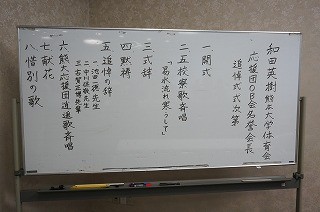 和田英樹熊本大学体育会
応援団OB会名誉会長
追悼式式次第
一開式
二五校寮歌斉唱
「易水流れ寒うして」
三式辞
四黙祷
五追悼の辞
六熊大応援団逍遥歌斉唱
七献花
八惜別の歌